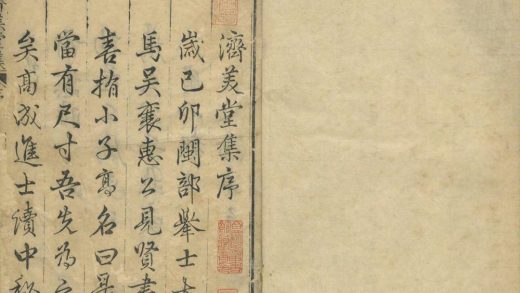 濟美堂集序
歲己卯閩部舉士
馬吴襄惠公見賢書
喜指小子寫名曰是
當有尺寸吾先為
矣高成進士讀中秘